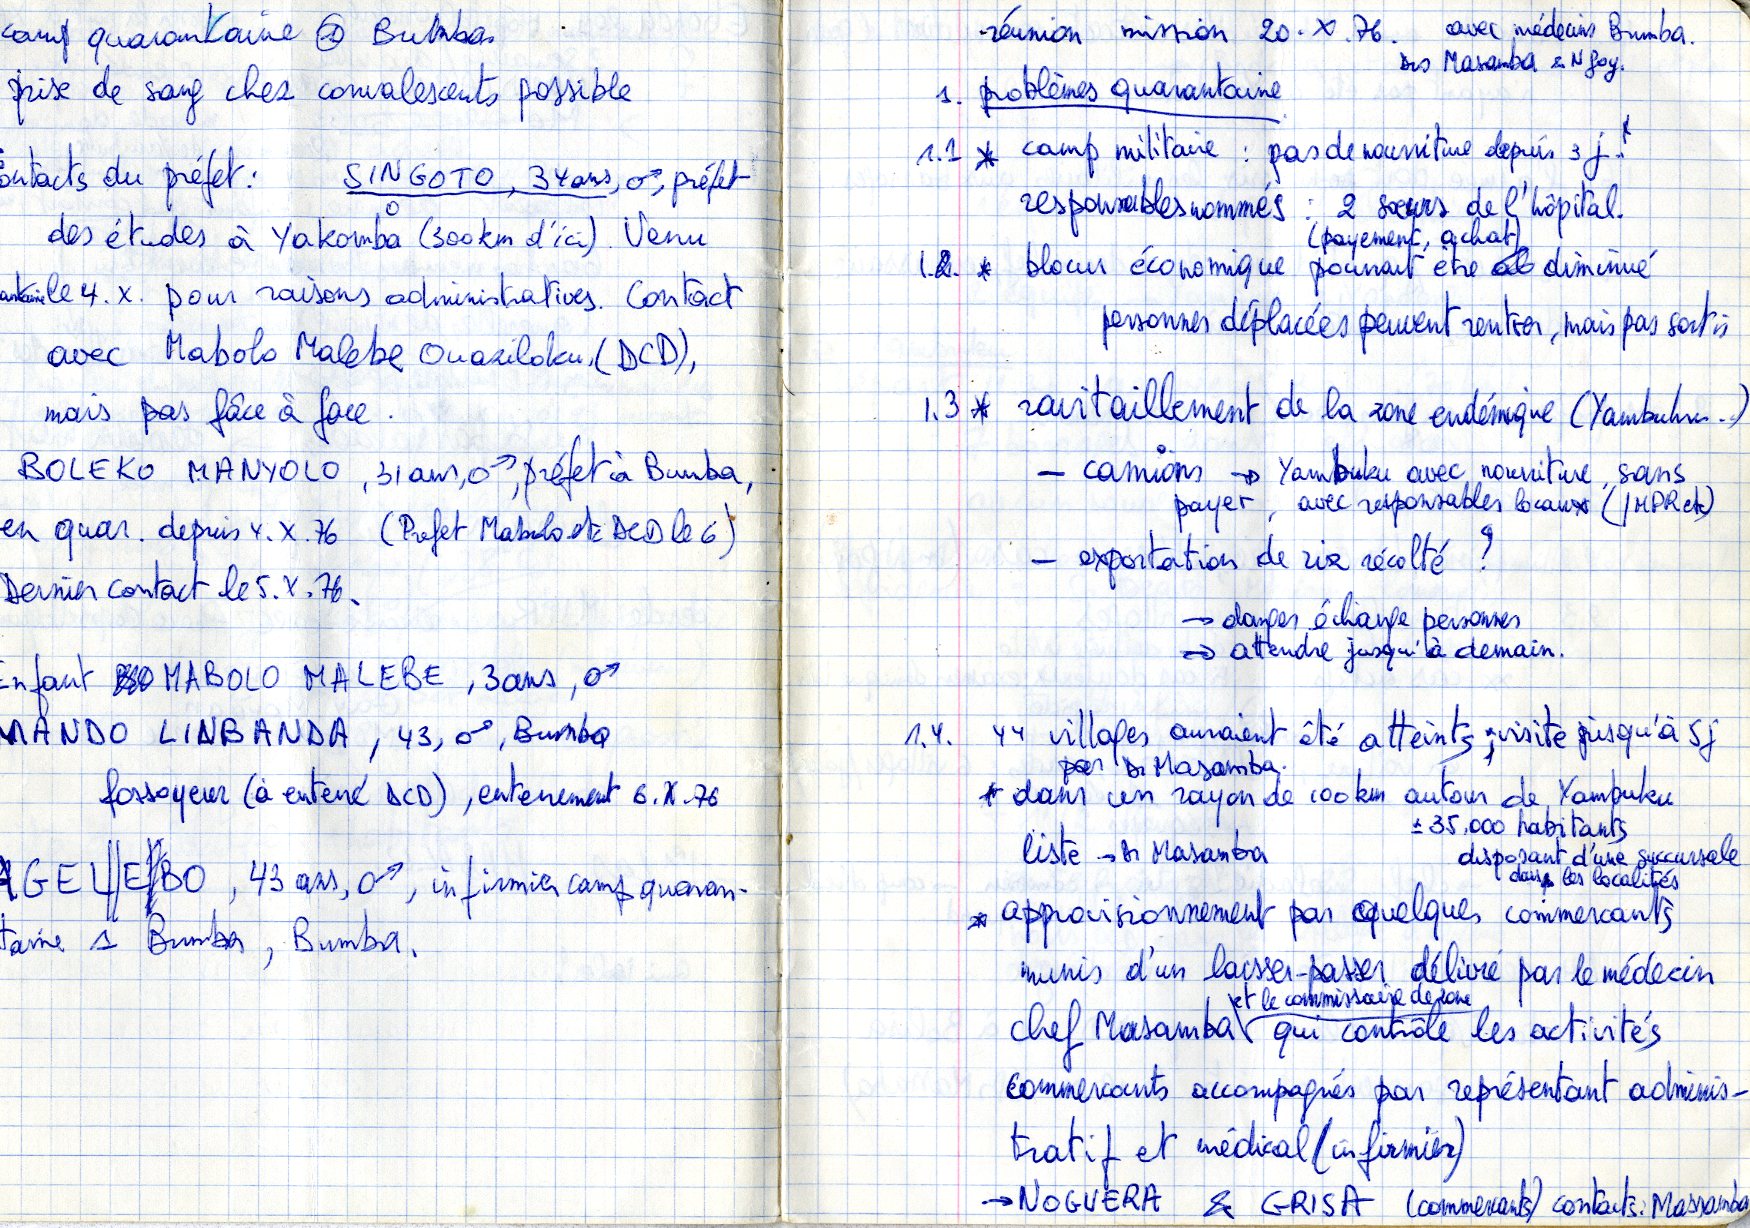 camp quarantaine ② Bumba
prise de sang chez convalescents possible
contacts du préfet : SINGOTO, 34 ans, ♂, préfet
des études à Yakomba (300 km d'ici). Venu
le 4.X. pour raisons administratives. Contact
avec Mabolo Malebe (DCD),
mais pas fâce à face.
BOLEKO MANYOLO, 31 ans, ♂, préfet à Bumba,
en quar. depuis 4.X.76 (Prefet Mabolo DCD le 6)
Dernier contact le 5.X.76.
Enfant MABOLO MALEBE, 3 ans, ♂
MANDO LINBANDA, 43, ♂, Bumba
fossoyeur (à enterré DCD), enterrement 6.X.76
43 ans, ♂, infirmier camp quaran-
taine 1 Bumba, Bumba.
réunion mission 20.X.76. avec médecins Bumba.
Drs Masamba & Ngoy.
1. problèmes quarantaine
1.1 * camp militaire : pas de nourriture depuis 3 j !
responsables nommés : 2 sœurs de l'hôpital.
(payement, achat)
1.2. * blocus économique pourrait être diminué
personnes déplacées peuvent rentrer, mais pas sortir
1.3 * ravitaillement de la zone endémique (Yambuku..)
– camions → Yambuku avec nourriture, sans
payer, avec responsables locaux (JMPR etc)
– exportation de riz récolté ?
→ danger échange personnes
→ attendre jusqu'à demain.
1.4. 44 villages auraient été atteints ; visite jusqu'à 5j
par Dr Masamba.
* dans un rayon de 100 km autour de Yambuku
± 35.000 habitants
liste → Dr Masamba
disposant d'une succursale
dans les localités
* approvisionnement par quelques commercants
munis d'un laisser-passer délivré par le médecin
et le commissaire de zone
chef Masamba qui contrôle les activités
commercants accompagnés par représentant adminis-
tratif et médical (infirmier)
→ NOGUERA & GRISA (commercants) contacts : Massamba